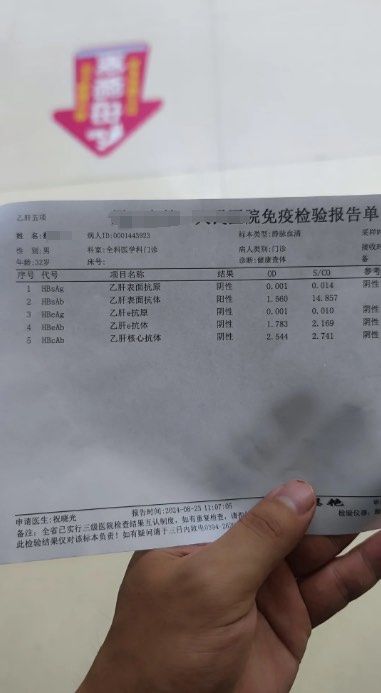 乙肝五项
医院免疫检验报告单
姓 名: 病人ID:0001443923 标本类型:静脉血清 采样时
性 别:男 科室:全科医学科门诊 病人类别:门诊 接收时
年龄:32岁 床号: 诊断:健康查体 备
序号 代号 项目名称 结果 OD S/CO 参考
1 HBsAg 乙肝表面抗原 阴性 0.001 0.014 阴性
2 HBsAb 乙肝表面抗体 阳性 1.560 14.857
3 HBeAg 乙肝e抗原 阴性 0.001 0.010 阴性
4 HBeAb 乙肝e抗体 阴性 1.783 2.169 阴性
5 HBcAb 乙肝核心抗体 阴性 2.544 2.741 阴性
申请医生:祝晓光 报告时间:2024-08-23 11:07:05
备注: 全省已实行三级医院检查结果互认制度, 如有重复检查, 请
此检验结果仅对该标本负责! 如有疑问请于三日内致电0394-262
检验仪器